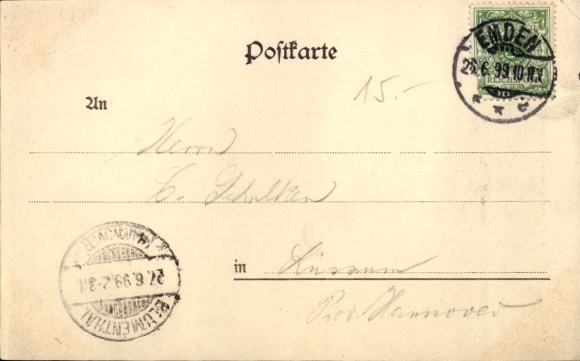 EMDEN
26.6.99.10-11.V.
REICHSPOST
Postkarte
15.-
An
Herrn
in Lüssum
Prov. Hannover
HANNOVER
27.6.99.2-3.N.
BLUMENTHAL